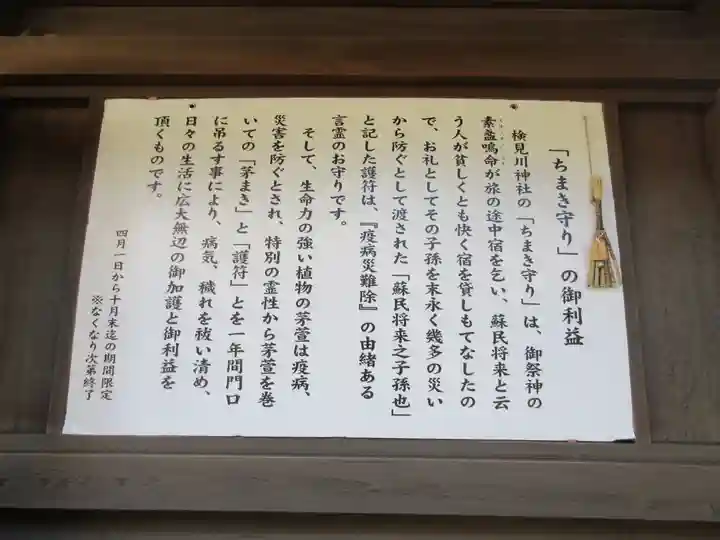 「ちまき守り」の御利益
検見川神社の「ちまき守り」は、御祭神の
素盞嗚命が旅の途中宿を乞い、蘇民将来と云
う人が貧しくとも快く宿を貸しもてなしたの
で、お礼としてその子孫を末永く幾多の災い
から防ぐとして渡された「蘇民将来之子孫也」
と記した護符は、『疫病災難除』の由緒ある
言霊のお守りです。
そして、生命力の強い植物の茅萱は疫病、
災害を防ぐとされ、特別の霊性から茅萱を巻
いての「茅まき」と「護符」とを一年間門口
に吊るす事により、病気、穢れを祓い清め、
日々の生活に広大無辺の御加護と御利益を
頂くものです。
四月一日から十月末迄の期間限定
※なくなり次第終了